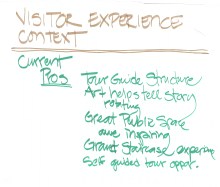 VISITOR EXPERIENCE
CONTEXT
Current
Pros
Tour Guide Structure
Art helps tell story
rotating
Great Public Space
awe inspiring
Grand Staircase experience
Self guided tour oppor.